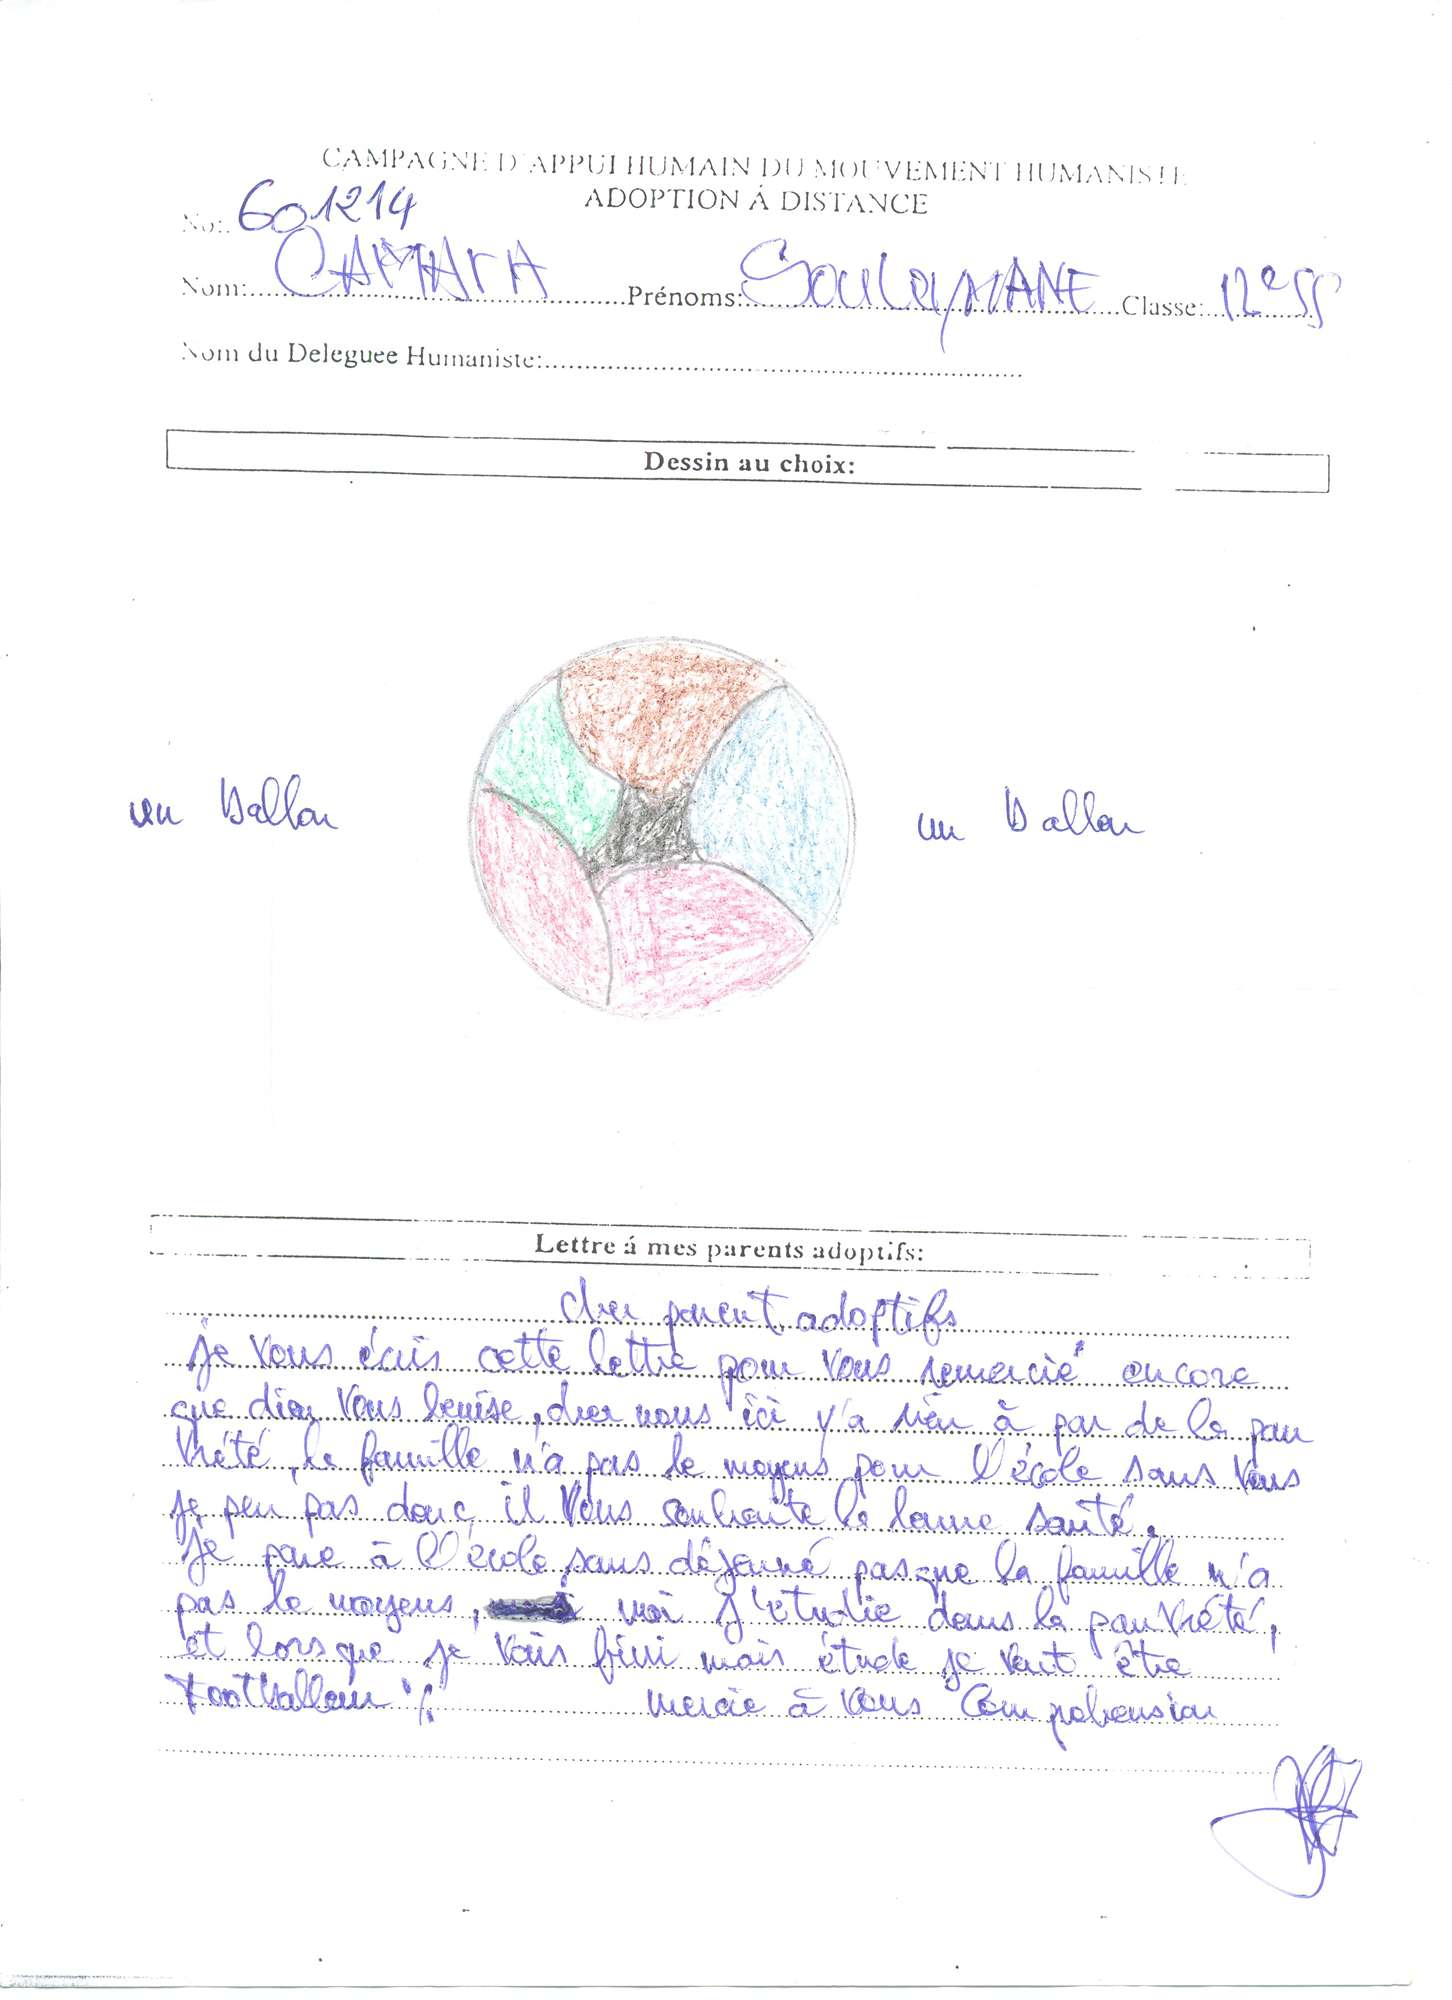 CAMPAGNE D'APPUI HUMAIN DU MOUVEMENT HUMANISTE
ADOPTION Á DISTANCE
No: 601214
Nom: CAMARA Prénoms: SOULEYMANE Classe: 12e SS
Nom du Deleguee Humaniste:
Dessin au choix:
un Ballon un Ballon
Lettre á mes parents adoptifs:
cher parent adoptifs
je vous écris cette lettre pour vous remercié encore
que dieu vous benise, cher nous ici y'a rien à par de la pau
vrété, la famille n'a pas le moyens pour l'école sans vous
je peu pas donc il vous souhaite la bonne santé.
Je pare à l'école sans déjeuné pasque la famille n'a
pas le moyens, moi j'étudie dans la pauvrété,
et lorsque je vais fini mais étude je veut être
Footballeur ·/. mercie à vous Comprehension